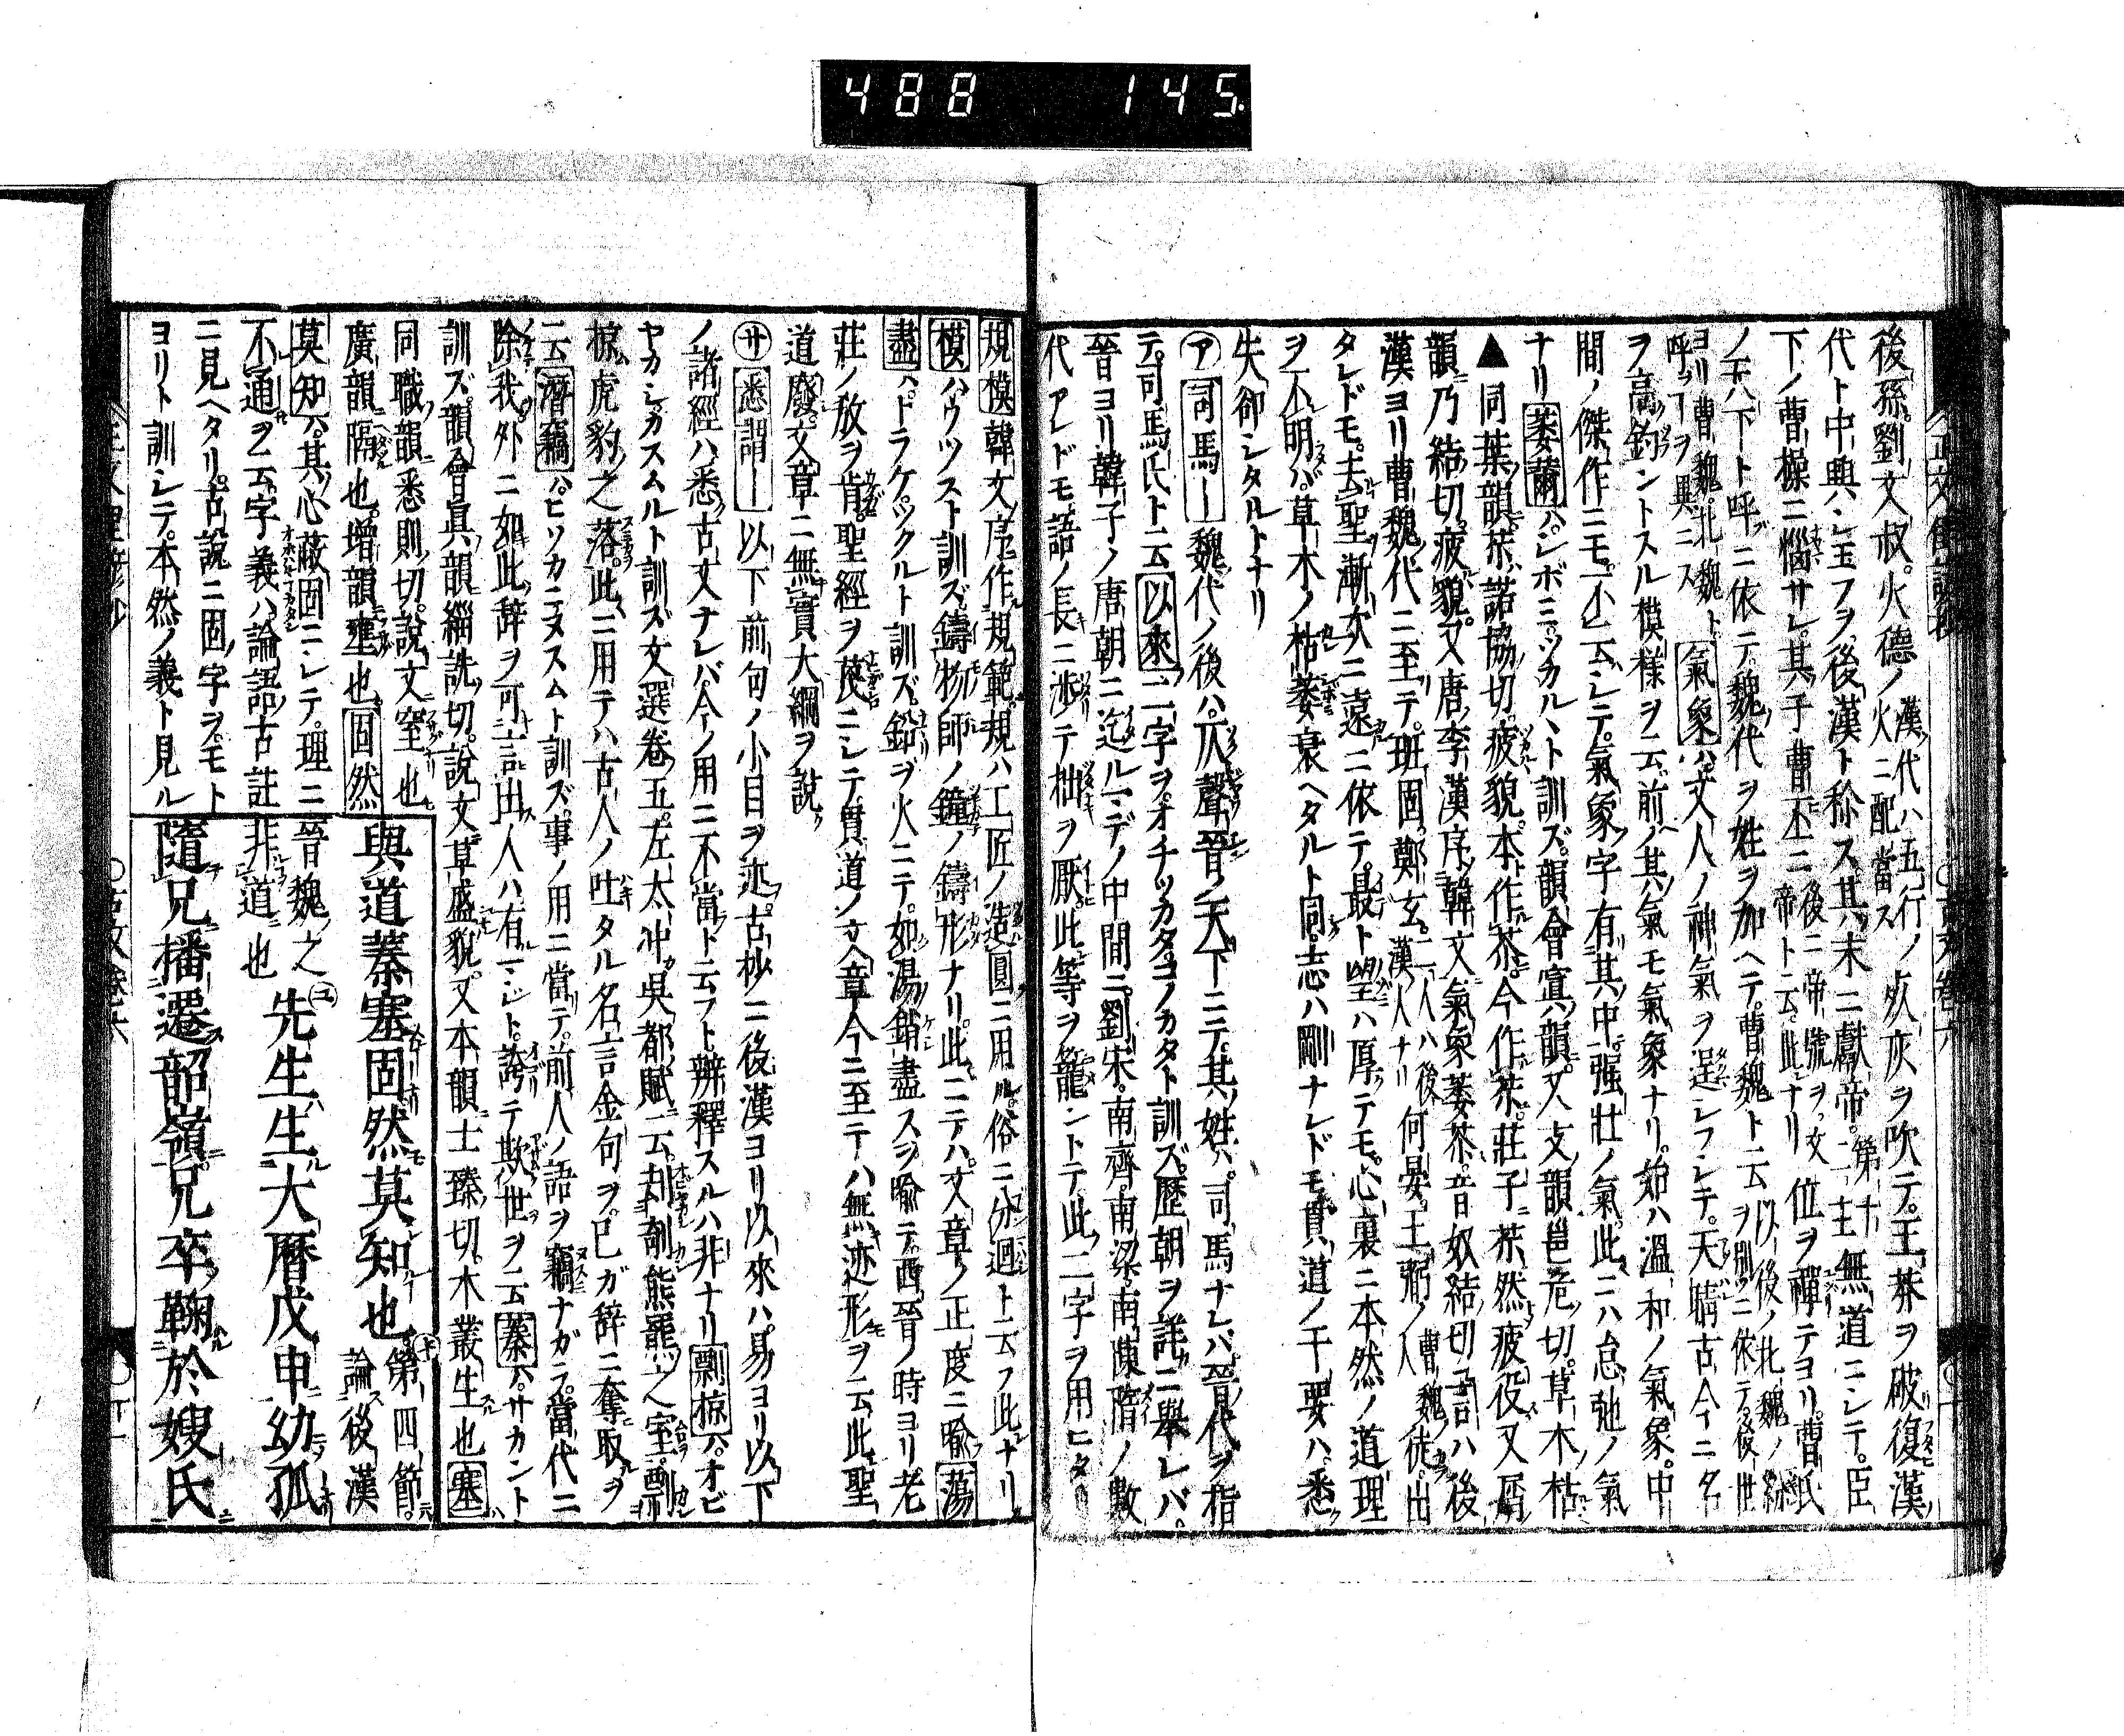 488 145
後孫劉文叔火德ノ漢代ハ五行ノ火ニ配當ス灰ヲ吹テ王莽ヲ破復漢
代ト中興シ玉フヲ後漢ト称ス其末ニ獻帝第十二主無道ニシテ臣
下ノ曹操ニ惱サレ其子曹丕ニ後ニ帝號ヲ文帝ト云此ナリ位ヲ禪テヨリ曹氏
ノ天下ト呼ニ依テ魏代ヲ姓ヲ加ヘテ曹魏ト云以後ノ北魏ノ ヲ別ツニ依テ後世
ヨリ曹魏北魏ト呼ヿヲ異ニス氣象ハ文人ノ神氣ヲ逞シフシテ天晴古今ニ名
ヲ高鈞ントスル模様ヲ云前ノ其氣モ氣象ナリ始ハ溫和ノ氣象中
間ノ傑作ニモ不云シテ氣象字有其中强壮ノ氣此ニハ怠弛ノ氣
ナリ萎薾ハシボミツカルヽト訓ズ韻會寘韻又支韻邕危切草木枯
▲同葉韻苶諾協切疲貌本作苶今作茶莊子苶然疲役又屑
韻乃結切疲貌又唐李漢序韓文氣象萎苶音奴結切言ハ後
漢ヨリ曹魏代ニ至テ班固鄭玄二人ハ後漢人ナリ何晏王弼ノ曹魏人徒出
タレドモ去聖漸久ニ遠ニ依テ最ト望ハ厚テモ心裏ニ本然ノ道理
ヲ不明ハ草木ノ枯萎衰ヘタルト同志ハ剛ナレドモ貫道ノ干要ハ悉
失卻シタルトナリ
㋐司馬ー魏代ノ後ハ仄聲晉ノ天下ニテ其姓ハ司馬ナレバ晉代ヲ指
テ司馬氏ト云以來二字ヲオチツカタコノカタト訓ズ歷朝ヲ託ニ舉レバ
晉ヨリ韓子ノ唐朝ニ迄ルマデノ中間ニ劉宋南齊南梁南陳隋ノ數
代アレドモ語ノ長ニ渉テ拙ヲ厭此等ヲ籠ントテ此二字ヲ用ヒタリ
規模韓文序作規範規ハ工匠ノ造圓ニ用ル俗ニ分迴ト云フ此ナリ
模ハウツスト訓ズ鑄物師ノ鐘ノ鑄形ナリ此ニテハ文章ノ正度ニ喩蕩
盡ハドラケツクルト訓ズ鉛ヲ火ニテ如湯銷盡スヲ喩テ西晉ノ時ヨリ老
莊ノ放ヲ肯聖經ヲ蔑ニシテ貫道ノ文章今ニ至テハ無迹形ヲ云此聖
道廢文章ニ無實大綱ヲ說
㋚悉謂ー以下前句ノ小目ヲ迹古抄ニ後漢ヨリ以來ハ易ヨリ以下
ノ諸經ハ悉古文ナレバ今ノ用ニ不當ト云フト辨釋スルハ非ナリ剽掠ハオビ
ヤカシカスムルト訓ズ文選卷五左太冲吳都賦云刦剞熊羆之室剽
掠虎豹之落此ニ用テハ古人ノ吐タル名言金句ヲ己ガ辞ニ奪取ヲ
云潛竊ハヒソカニヌスムト訓ズ事ノ用ニ當テ前人ノ語ヲ竊ナガラ當代ニ
除我外ニ如此辞ヲ可言出人ハ有マジト誇テ欺世ヲ云蓁ハサカント
訓ズ韻會眞韻緇詵切說文草盛貌又本韻士臻切木叢生也塞
同職韻悉則切說文窒也
廣韻隔也增韻壅也固然
與道蓁塞固然莫知也㋖第四節論後漢
莫知ハ其心蔽固ニシテ理ニ
不通ヲ云字義ハ論語古註
ニ見ヘタリ古說ニ固字ヲモト
ヨリト訓シテ本然ノ義ト見ル
晉魏之
非道也
㋓先生生大曆戊申幼孤
隨兄播遷韶嶺兄卒鞠於嫂氏